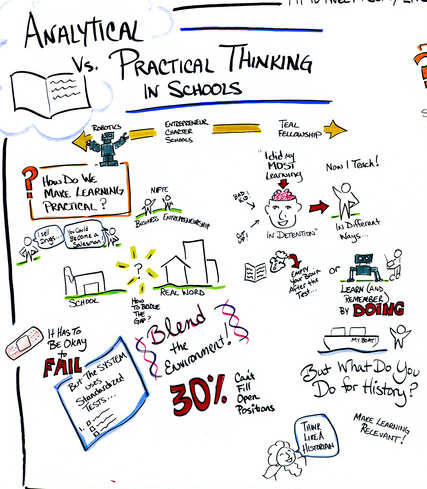 ANALYTICAL
VS. PRACTICAL THINKING
IN SCHOOLS
ROBOTICS
ENTREPRENEUR
CHARTER
SCHOOLS
TEAL
FELLOWSHIP
? HOW DO WE
MAKE LEARNING
PRACTICAL?
NIFTE
BUSINESS ENTREPRENEURSHIP
I SELL
DRUGS...
YOU COULD
BECOME A
SALESMAN!
"I did my
MOST
Learning
BAD KID!
IN DETENTION"
Now I Teach!
IN DIFFERENT
WAYS...
SCHOOL
?
REAL WORD
HOW TO BRIDGE
THE
GAP?
EMPTY
YOUR BRAIN
AFTER THE
TEST...
OR
LEARN (AND
REMEMBER)
BY DOING
IT HAS TO
BE OKAY
to
FAIL
BUT THE SYSTEM
USES
Standardized
TESTS...
1.
Blend
the
Environment!
30% Can't
Fill
Open
Positions
MY BOAT!
But What Do You
Do for History?
THINK
LIKE A
HISTORIAN
MAKE LEARNING
RELEVANT!